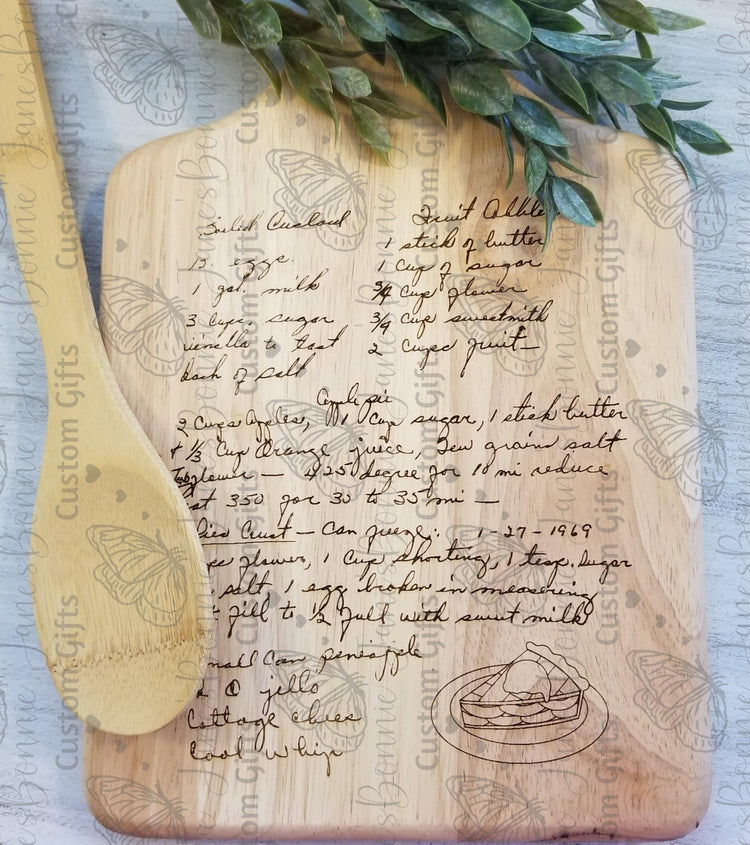 Boiled Custard
13 eggs.
1 gal. milk
3 cups. sugar
vienilla to tast
dash of salt
Fruit Cobble
1 stick of butter
1 cup of sugar
3/4 cup flower
3/4 cup sweetmilk
2 cups fruit —
Apple pie
2 Cups Apples, 1 cup sugar, 1 stick butter
+ 1/3 Cup Orange juice, Few grains salt
flower — 425 degree for 10 mi reduce
at 350 for 30 to 35 mi —
Pies Crust — Can freeze: 1-27-1969
flower, 1 Cup shorting, 1 tesp. sugar
salt 1 egg broken in measering
fill to 1/2 full with sweet milk
small Can pineapple
jello
Cottage chees
Cool whip
Bonnie Jane's
Custom Gifts